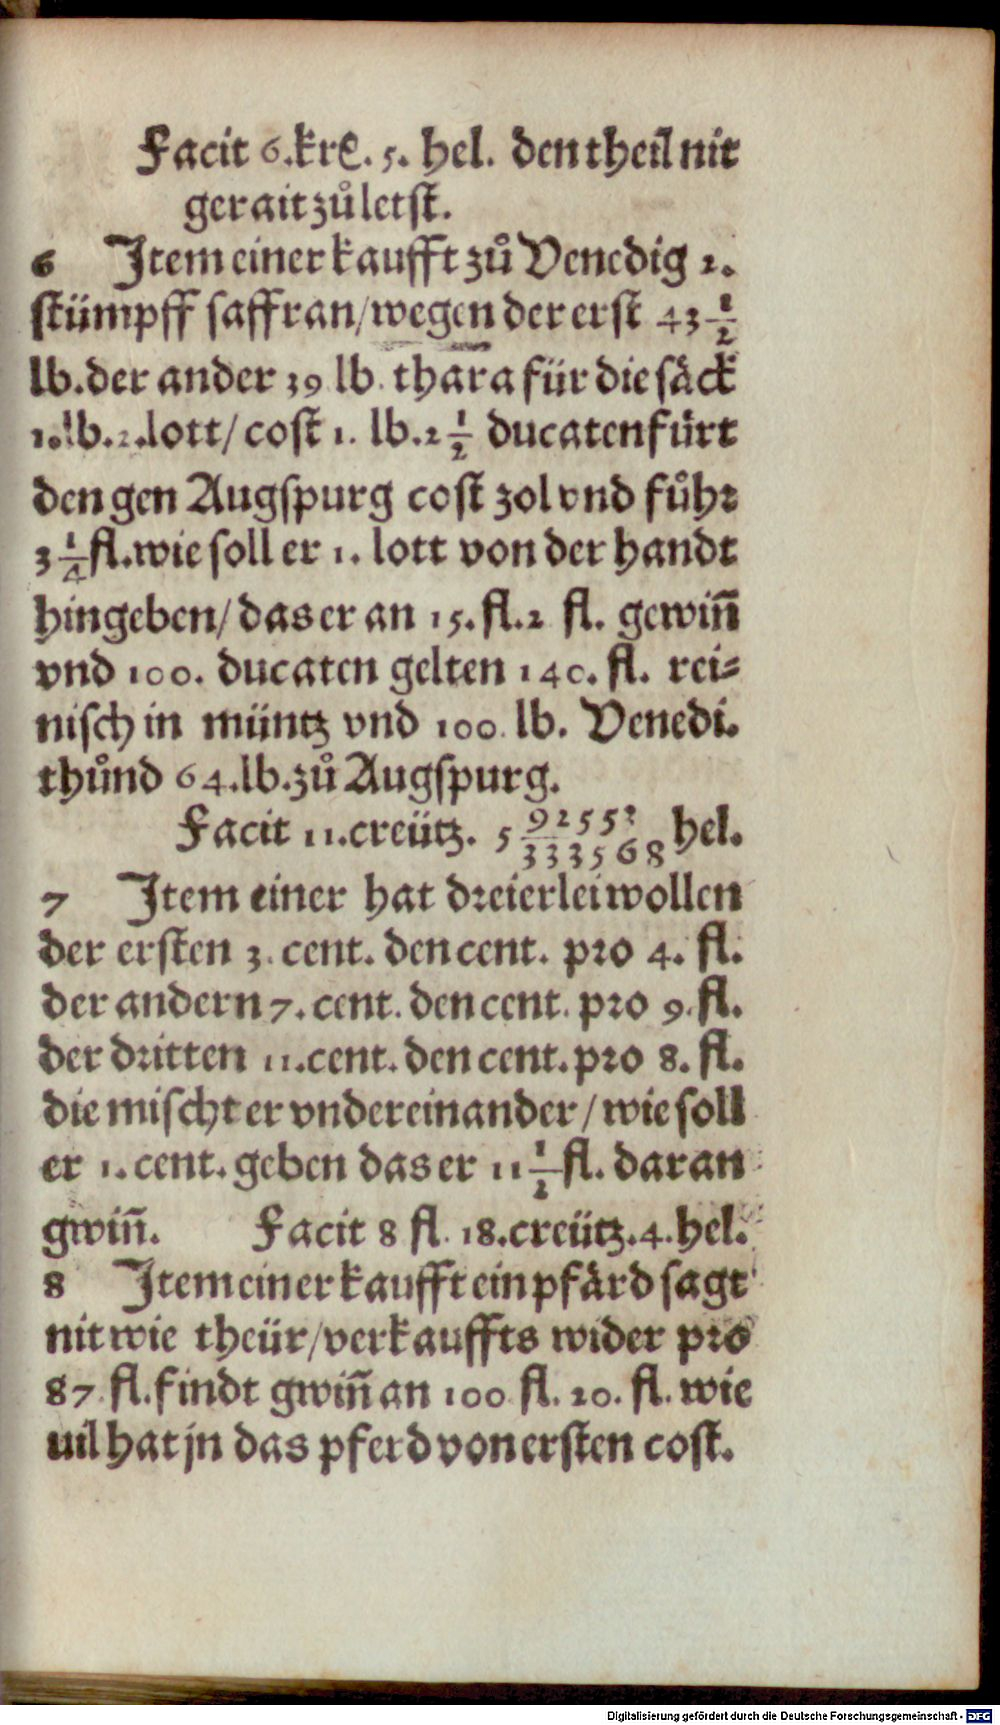 Facit 6.krē. 5. hel. den theil nit
gerait zů letst.
6 Item einer kaufft zů Venedig 2.
stümpff saffran/wegen der erst 43 1/2
lb. der ander 39 lb. thara für die säck
1. lb. 2. lott/ cost 1. lb. 2 1/2 ducaten fürt
den gen Augspurg cost zol vnd fůhr
3 1/4 fl. wie soll er 1. lott von der handt
hingeben/ das er an 15. fl. 2 fl. gewiñ
vnd 100. ducaten gelten 140. fl. rei-
nisch in müntz vnd 100. lb. Venedi.
thůnd 64. lb. zů Augspurg.
Facit 11. creütz. 5 92552/333568 hel.
7 Item einer hat dreierlei wollen
der ersten 3. cent. den cent. pro 4. fl.
der andern 7. cent. den cent. pro 9. fl.
der dritten 11. cent. den cent. pro 8. fl.
die mischt er vndereinander/ wie soll
er 1. cent. geben das er 11 1/2 fl. daran
gwiñ. Facit 8 fl. 18. creütz. 4. hel.
8 Item einer kaufft ein pfärd sagt
nit wie theür/verkauffts wider pro
87 fl. findt gwiñ an 100 fl. 20. fl. wie
uil hat jn das pferd von ersten cost.
Digitalisierung gefördert durch die Deutsche Forschungsgemeinschaft - DFG